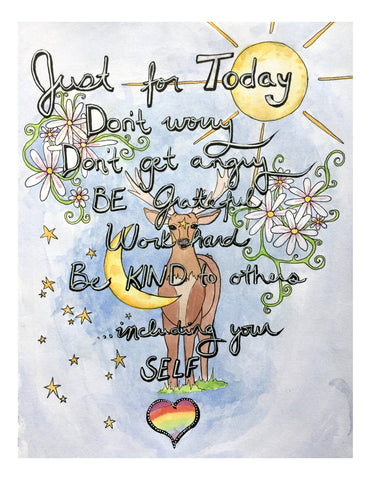 Just for Today
Don't worry
Don't get angry
BE Grateful
Work hard
Be KIND to others
...including your
SELF